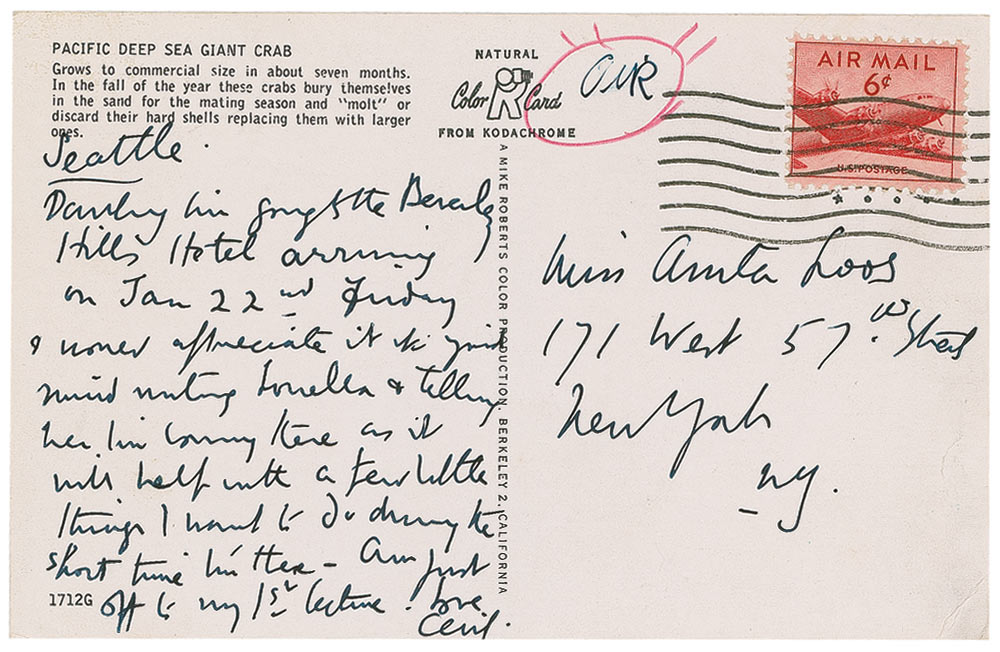 PACIFIC DEEP SEA GIANT CRAB
Grows to commercial size in about seven months.
In the fall of the year these crabs bury themselves
in the sand for the mating season and "molt" or
discard their hard shells replacing them with larger
ones.
Seattle.
Darling I'm going to the Beverly
Hills Hotel arriving
on Jan 22nd Friday
& would appreciate it if you'd
mind writing Louella & telling
her I'm coming there as it
will help with a few little
things I want to do during the
short time I'm there - Am just
off to my 1st lecture. Love
Cecil.
1712G
NATURAL
Color Card
FROM KODACHROME
A MIKE ROBERTS COLOR PRODUCTION. BERKELEY 2, CALIFORNIA
AIR
AIR MAIL
6¢
U.S. POSTAGE
Miss Anita Loos
171 West 57th Street
New York
NY.